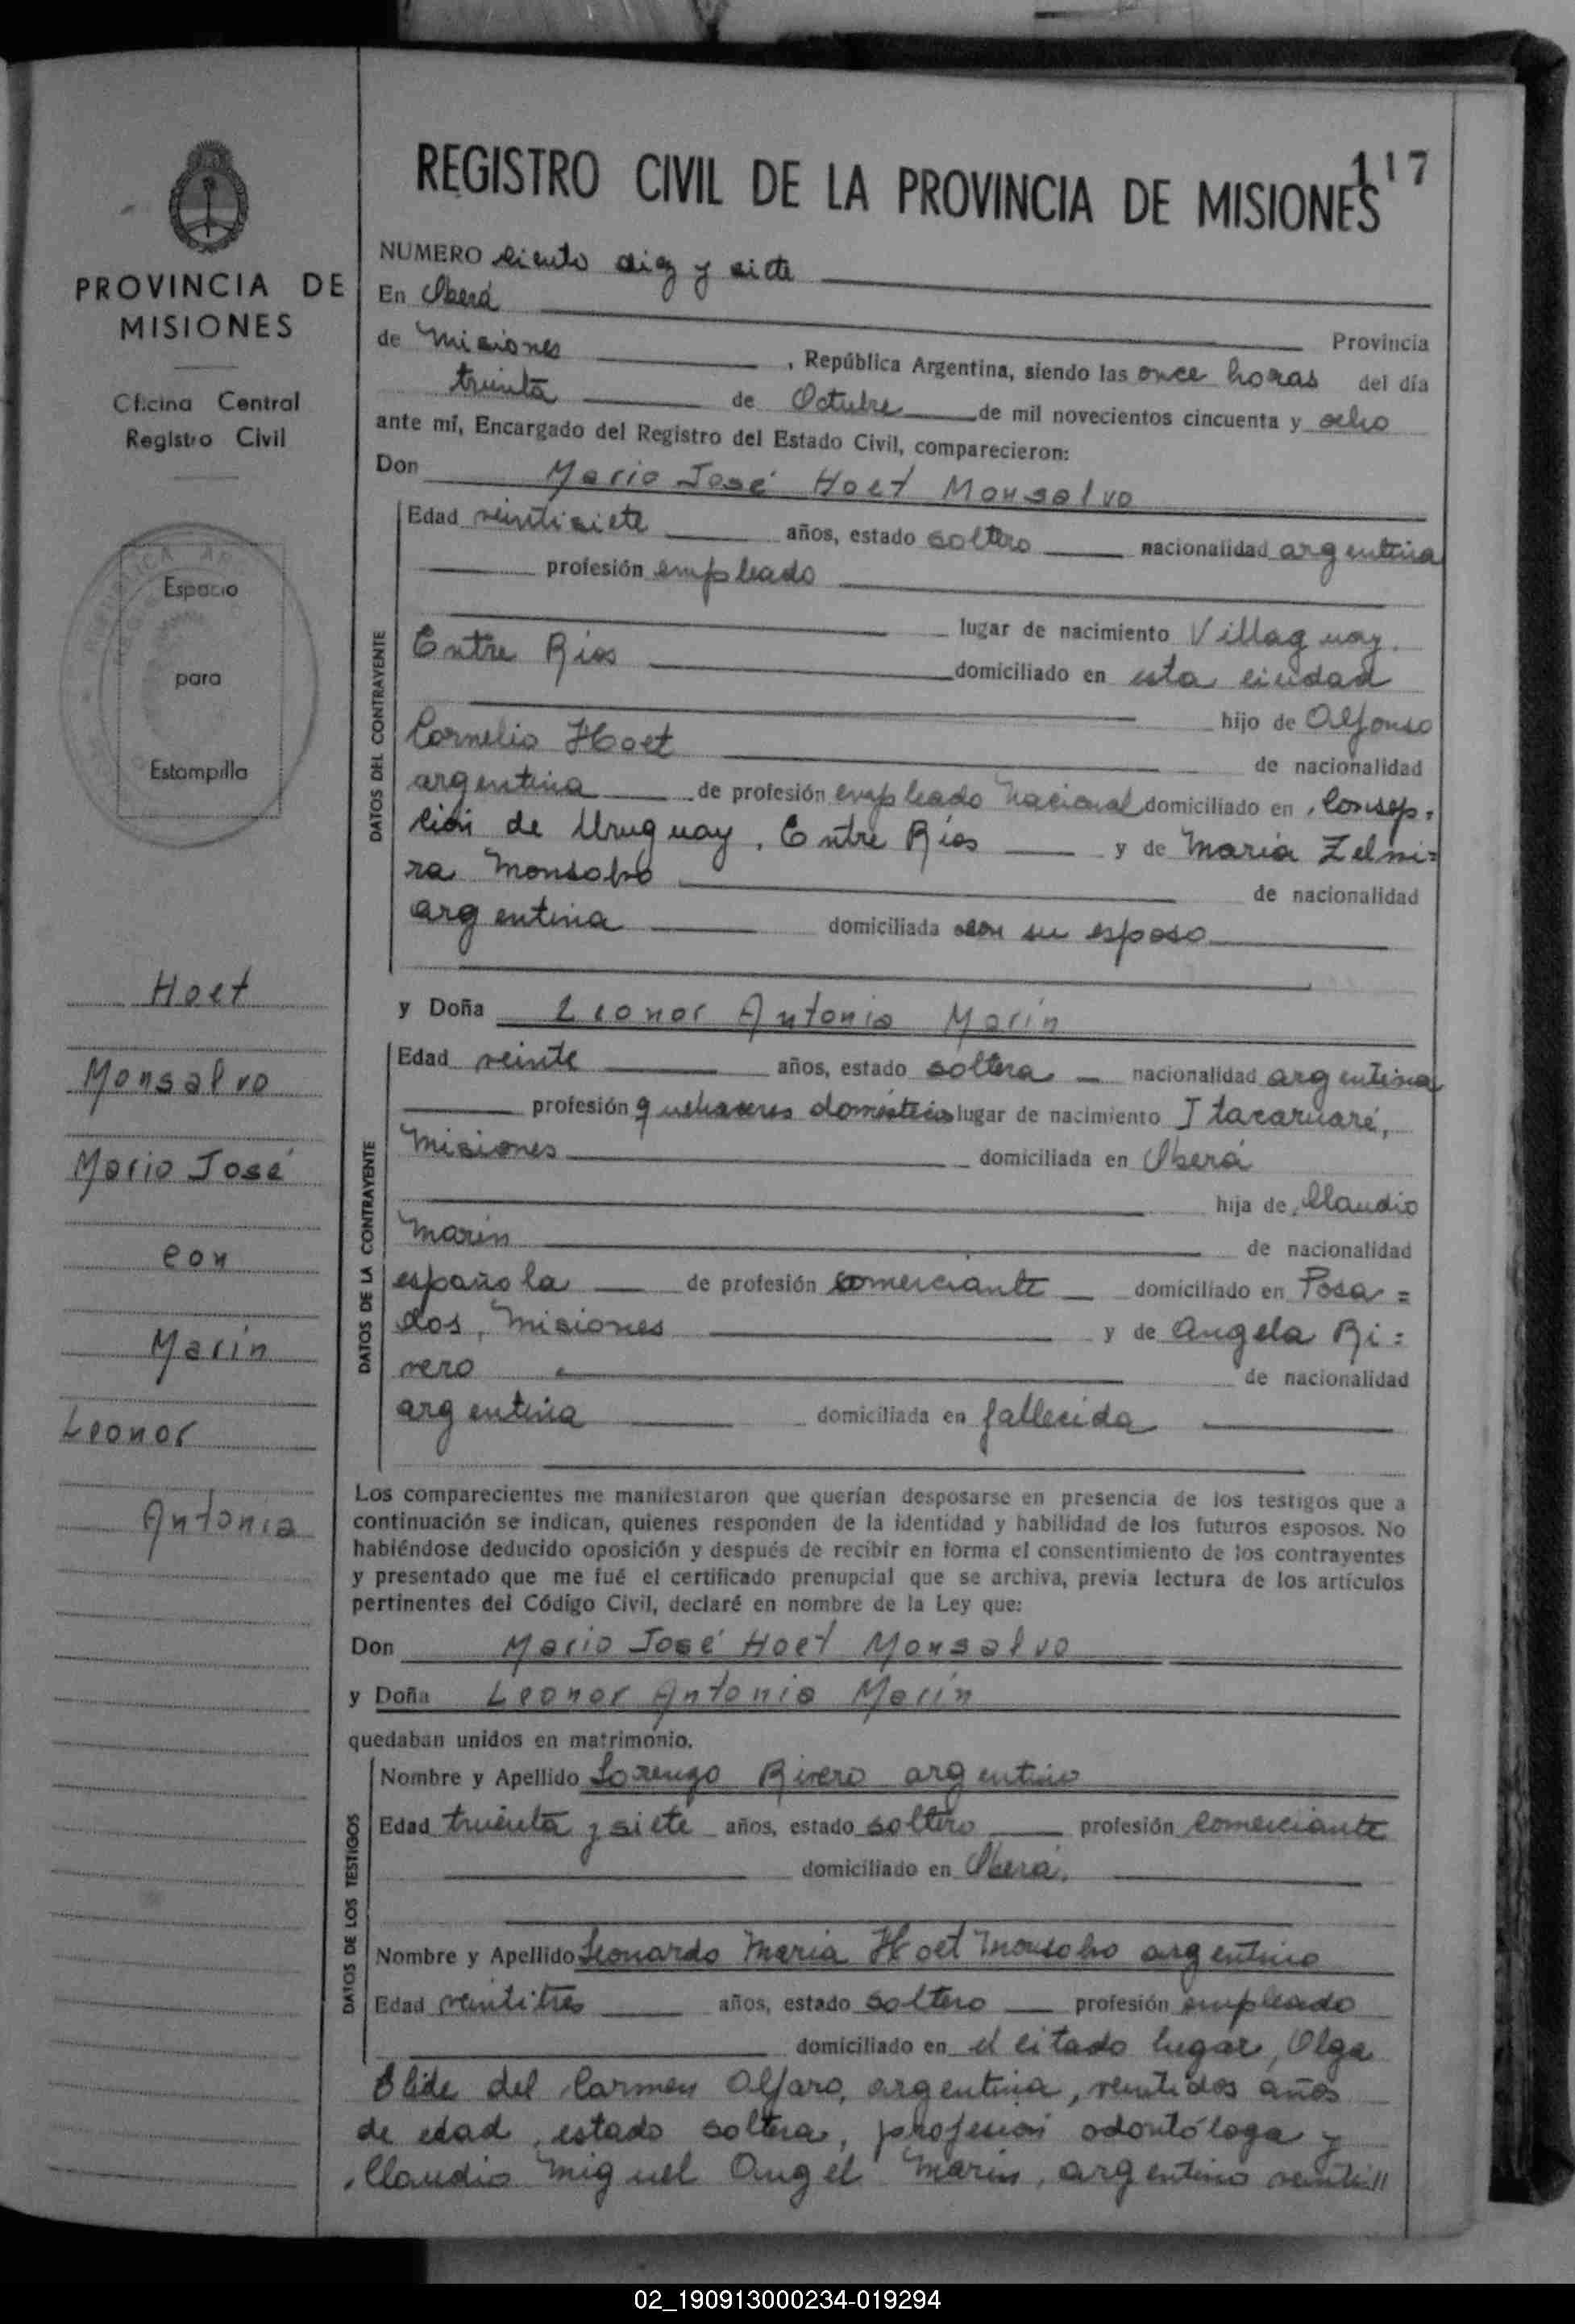 PROVINCIA DE
MISIONES
Oficina Central
Registro Civil
Espacio
para
Estampilla
Hoet
Monsalvo
Mario José
con
Marín
Leonor
Antonia
117
REGISTRO CIVIL DE LA PROVINCIA DE MISIONES
NUMERO ciento diez y siete
En Oberá
Provincia
de Misiones , República Argentina, siendo las once horas del día
treinta de Octubre de mil novecientos cincuenta y ocho
ante mí, Encargado del Registro del Estado Civil, comparecieron:
Don Mario José Hoet Monsalvo
DATOS DEL CONTRAYENTE
Edad veintisiete años, estado soltero nacionalidad argentina
profesión empleado
lugar de nacimiento Villaguay,
Entre Ríos domiciliado en esta ciudad
hijo de Alfonso
Cornelio Hoet de nacionalidad
argentina de profesión empleado Nacional domiciliado en Consep-
ción de Uruguay, Entre Ríos y de María Zelmi=
ra Monsalvo de nacionalidad
argentina domiciliada con su esposo
y Doña Leonor Antonia Marín
DATOS DE LA CONTRAYENTE
Edad veinte años, estado soltera nacionalidad argentina
profesión quehaceres domésticos lugar de nacimiento Itacaruaré,
Misiones domiciliada en Oberá
hija de Claudio
Marín de nacionalidad
española de profesión comerciante domiciliado en Posa=
das, Misiones y de Angela Ri=
vero de nacionalidad
argentina domiciliada en fallecida
Los comparecientes me manifestaron que querían desposarse en presencia de los testigos que a
continuación se indican, quienes responden de la identidad y habilidad de los futuros esposos. No
habiéndose deducido oposición y después de recibir en forma el consentimiento de los contrayentes
y presentado que me fué el certificado prenupcial que se archiva, previa lectura de los artículos
pertinentes del Código Civil, declaré en nombre de la Ley que:
Don Mario José Hoet Monsalvo
y Doña Leonor Antonia Marín
quedaban unidos en matrimonio.
DATOS DE LOS TESTIGOS
Nombre y Apellido Lorenzo Rivero argentino
Edad treinta y siete años, estado soltero profesión comerciante
domiciliado en Oberá.
Nombre y Apellido Leonardo María Hoet Monsalvo argentino
Edad veintitres años, estado soltero profesión empleado
domiciliado en el citado lugar, Olga
Elide del Carmen Alfaro, argentina, veintidos años
de edad, estado soltera, profesión odontóloga y
Claudio Miguel Angel Marín, argentino veinti//
02_190913000234-019294